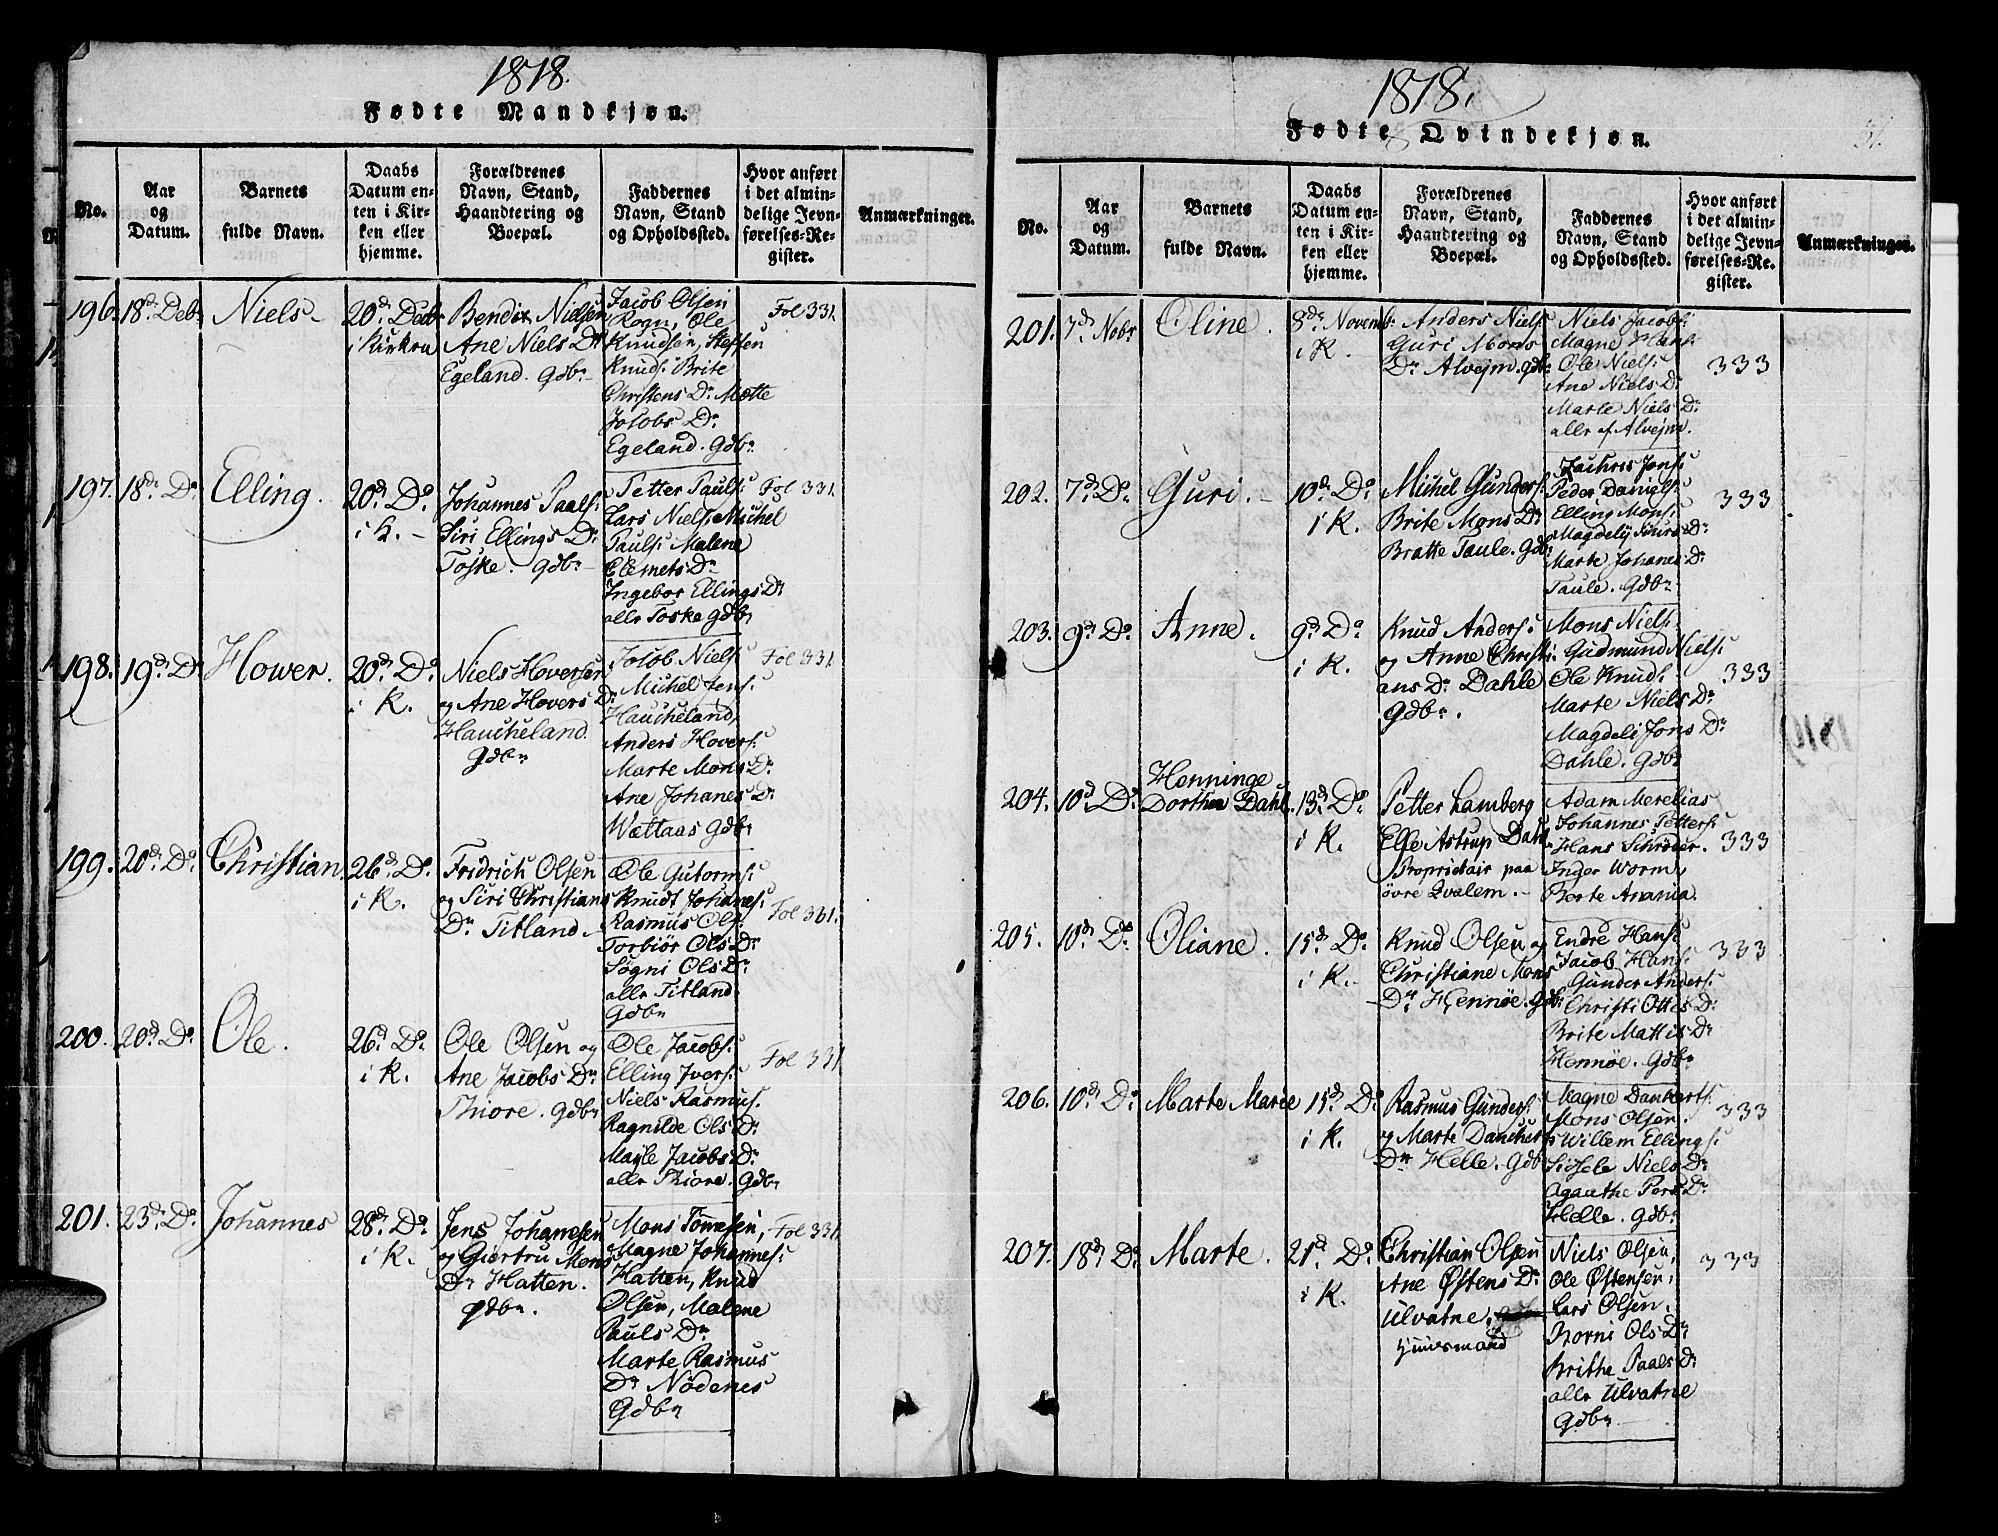 1818.
Fødte Mandkjøn.
No.
Aar
og
Datum.
Barnets
fulde Navn.
Daabs
Datum en-
ten i Kir-
ken eller
hjemme.
Forældrenes
Navn, Stand,
Haandtering og
Boepæl.
Faddernes
Navn, Stand
og Opholdssted.
Hvor anført
i det almin-
delige Jevn-
førelses-Re-
gister.
Anmærkninger.
196. 18de Debr Niels
20de Debr
i Kirken
Bendix Nielsen
Ane Niels Dr
Egeland. Gdbr
Jacob Olsen
Rogn, Ole
Knudsen, Steffen
Knuds: Brite
Christens Dr Mætte
Jolobs Dr
Egeland. Gdbr
Fol 331.
197. 18de Do Elling.
20de Do
i K.
Johannes Paals:
Siri Ellings Dr
Toske. Gdbr
Petter Pauls:
Lars Niels: Michel
Pauls: Malene
Clemets Dr
Ingebor Ellings Dr
alle Toske Gdbr
Fol 331.
198. 19de Do Hower.
20de Do
i K.
Niels Hoversen
og Ane Hovers Dr
Haucheland.
Gdbr
Jolob Niels:
Michel Jens:
Haucheland,
Anders Hovers:
Marte Mons Dr
Ane Johanes Dr
Wættaas Gdbr
Fol 331.
199. 20de Do Christian.
26de Do
i K.
Fridrich Olsen
og Siri Christians
Dr Titland
Ole Gutorms:
Knudt Johanes:
Rasmus Ols:
Torbiør Ols Dr
Søgni Ols Dr
alle Titland.
Gdbr
Fol 331.
200. 20de Do Ole.
26de Do
i K.
Ole Olsen og
Ane Jacobs Dr
Thiore. Gdbr
Ole Jacobs:
Elling Ivers:
Niels Rasmus.
Ragnilde Ols Dr
Mayle Jacobs Dr
alle Thiore. Gdbr
Fol 331
201. 23de Do Johannes
28de Do
i K.
Jens Johanesen
og Giertru Mons
Dr Hatten.
Gdbr.
Mons Tønnesen,
Magne Johannes:
Hatten, Knud
Olsen, Malene
Pauls Dr
Marte Rasmus
Dr Nødenes
Gdbr
Fol 331
1818.
Fødte Qvindekjøn.
No.
Aar
og
Datum.
Barnets
fulde Navn.
Daabs
Datum en-
ten i Kir-
ken eller
hjemme.
Forældrenes
Navn, Stand,
Haandtering og
Boepæl.
Faddernes
Navn, Stand
og Opholdssted.
Hvor anført
i det almin-
delige Jevn-
førelses-Re-
gister.
Anmærkninger.
201. 7de Nobr Oline.
8de Novemb:
i K.
Anders Niels:
Guri Mons
Dr Alvejm. Gdbr
Niels Jacobs:
Magne Hans:
Ole Niels:
Ane Niels Dr
Marte Niels Dr
alle af Alvejm.
333
202. 7de Do Guri.
10de Do
i K.
Michel Gunders:
Brite Mons Dr
Bratte Taule. Gdbr
Zachris Jons:
Peder Daniels:
Elling Mons:
Magdely Siurs Dr
Marte Johanes Dr
Taule. Gdbr
333
203. 9de Do Anne.
9de Do
i K.
Knud Anders:
og Anne Christi-
ans Dr Dahle
Gdbr.
Mons Niels:
Gudmund Niels:
Ole Knuds:
Marte Niels Dr
Magdeli Jons Dr
Dahle. Gdbr
333
204. 10de Do Henninge
Dorthea Dahl.
13de Do
i K.
Petter Lamberg
Else Astrup Dahl
Proprietair paa
øvre Qvalem.
Adam Merelias
Johannes Petters:
Hans Schrøder.
Inger Worm
Berte Anania.
333
205. 10de Do Oliane.
15de Do
i K.
Knud Olsen og
Christiane Mons
Dr Hennøe. Gdbr
Endre Hans:
Jacob Hans:
Gunder Anders:
Christi Ottes Dr
Brite Mattis Dr
Hennøe. Gdbr
333
206. 10de Do Marte Marie
15de Do
i K.
Rasmus Gunders:
og Marte Dancherts
Dr Helle. Gdbr
Magne Dankerts:
Mons Olsen.
Willem Ellings:
Sidsele Niels Dr
Agaathe Pers Dr
Helle. Gdbr
333
207. 18de Do Marte.
21de Do
i K.
Christian Olsen
Ane Østens Dr
Ulvatne.
Huusmand
Niels Olsen,
Ole Østensen,
Lars Olsen.
Borni Ols Dr
Brithe Paals Dr
alle Ulvatne
Gdbr
333